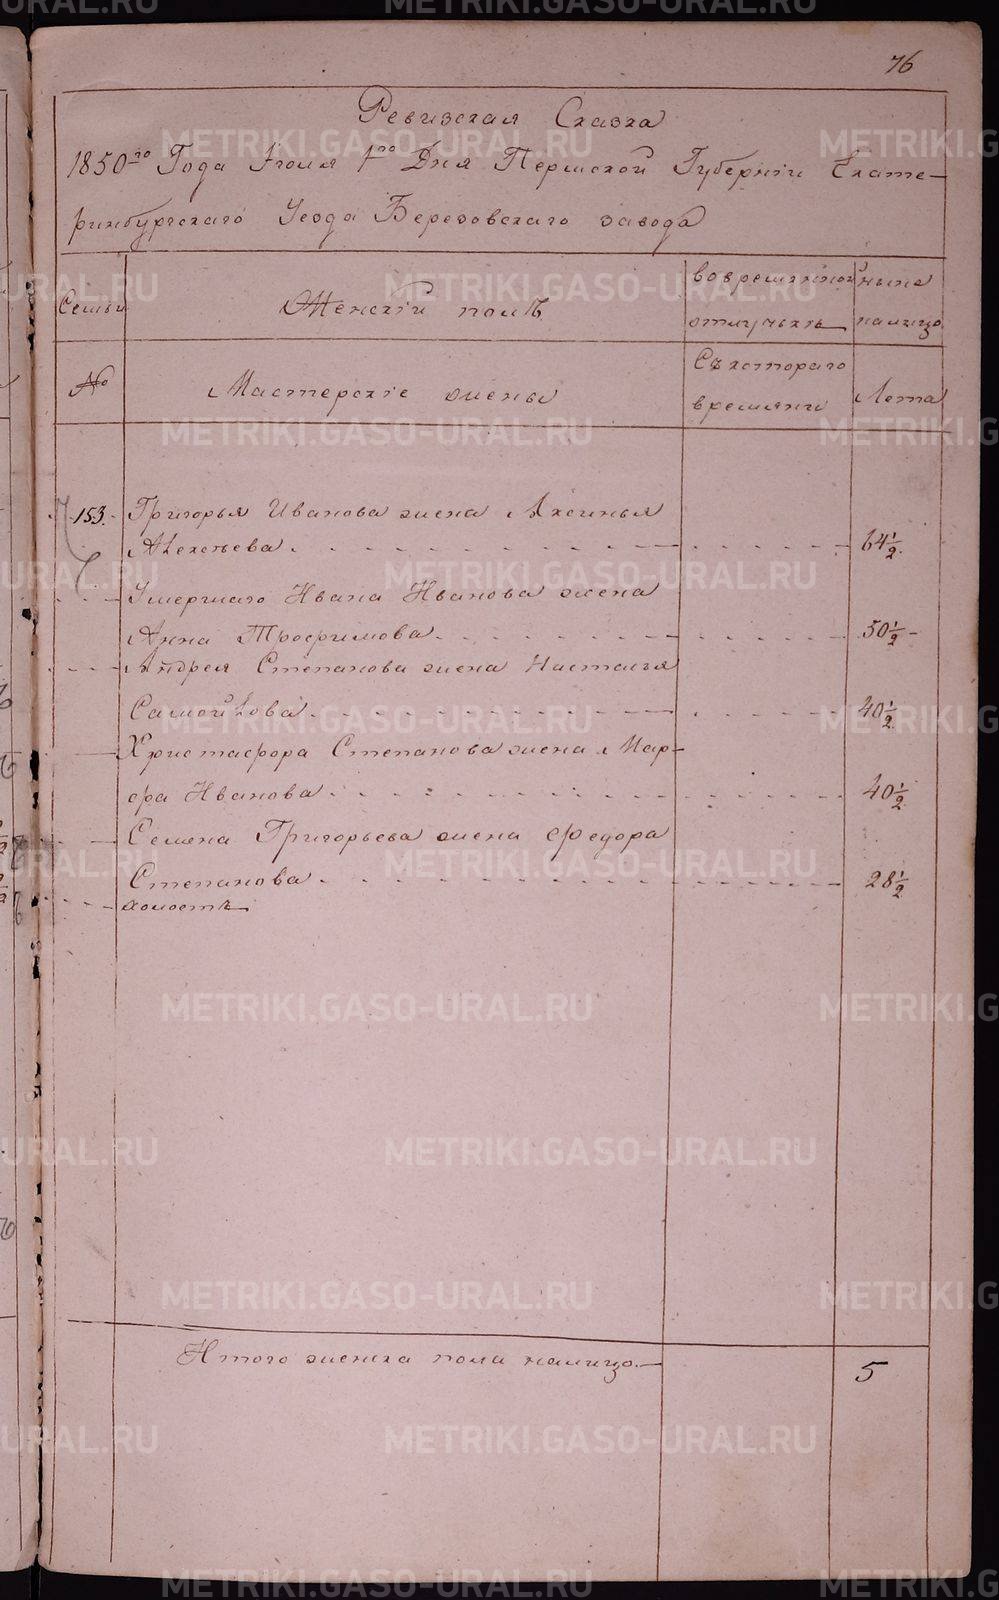 76
Ревизская Сказка
1850го Года Июля 1го Дня Пермской Губернiи Екате-
ринбургскаго Уезда Березовскаго завода
Семьи
Женскiй полъ
вовремянной
отлучьке
ныне
налицо.
№
Мастерскiе жены
Съкотораго
времяни
Лета
153.
Григорья Иванова жена Аксинья
Алексеева.
64 1/2.
Умершаго Ивана Иванова жена
Анна Трофимова.
50 1/2
Андрея Степанова жена Насталья
Самойлова.
40 1/2.
Христафора Степанова жена Мар-
фа Иванова
40 1/2.
Семена Григорьева жена Федора
Степанова
28 1/2.
холостъ
Итого женска пола налицо.
5
METRIKI.GASO-URAL.RU